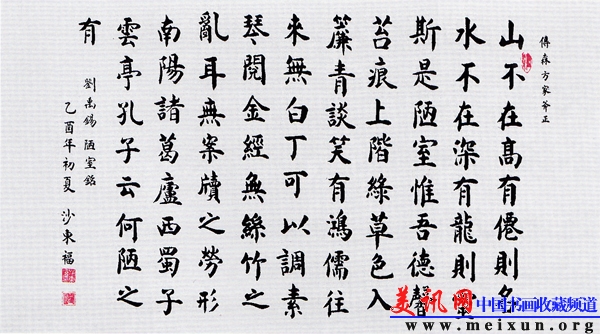 傳森方家斧正
山不在高有僊則名
水不在深有龍則靈
斯是陋室惟吾德馨
苔痕上階綠草色入
簾青談笑有鴻儒往
來無白丁可以調素
琴閱金經無絲竹之
亂耳無案牘之勞形
南陽諸葛廬西蜀子
雲亭孔子云何陋之
有
劉禹錫 陋室銘
乙酉年初夏 沙東福
美讯网 中国书画收藏频道
www.meixun.org